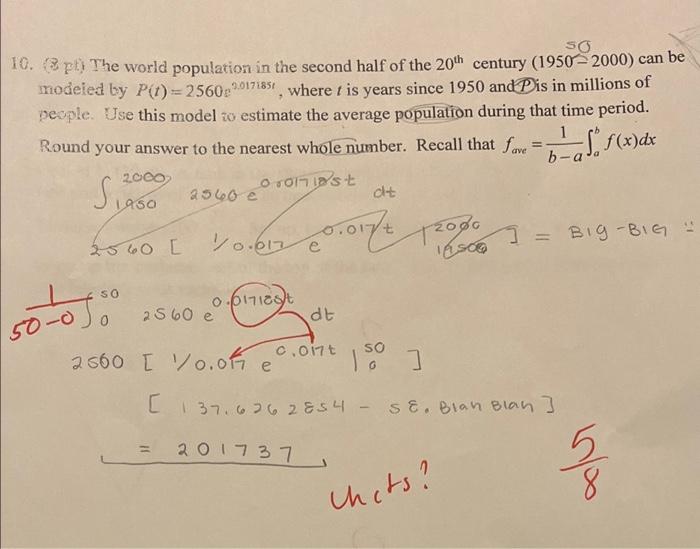 50
10. (8 pt) The world population in the second half of the 20th century (1950 – 2000) can be
modeled by P(t) = 2560e^0.017185t, where t is years since 1950 and P is in millions of
people. Use this model to estimate the average population during that time period.
Round your answer to the nearest whole number. Recall that f_ave = 1/(b−a) ∫_a^b f(x)dx
∫_1950^2000 2560 e^0.017185t dt
2560 [ 1/0.017 e^0.017t |^2000_1950 ] = BIG - BIG
1/(50-0) ∫_0^50 2560 e^0.017185t dt
2560 [ 1/0.017 e^0.017t |^50_0 ]
[ 137.6262854 - 58. Blah Blah ]
= 201737
Units?
5/8